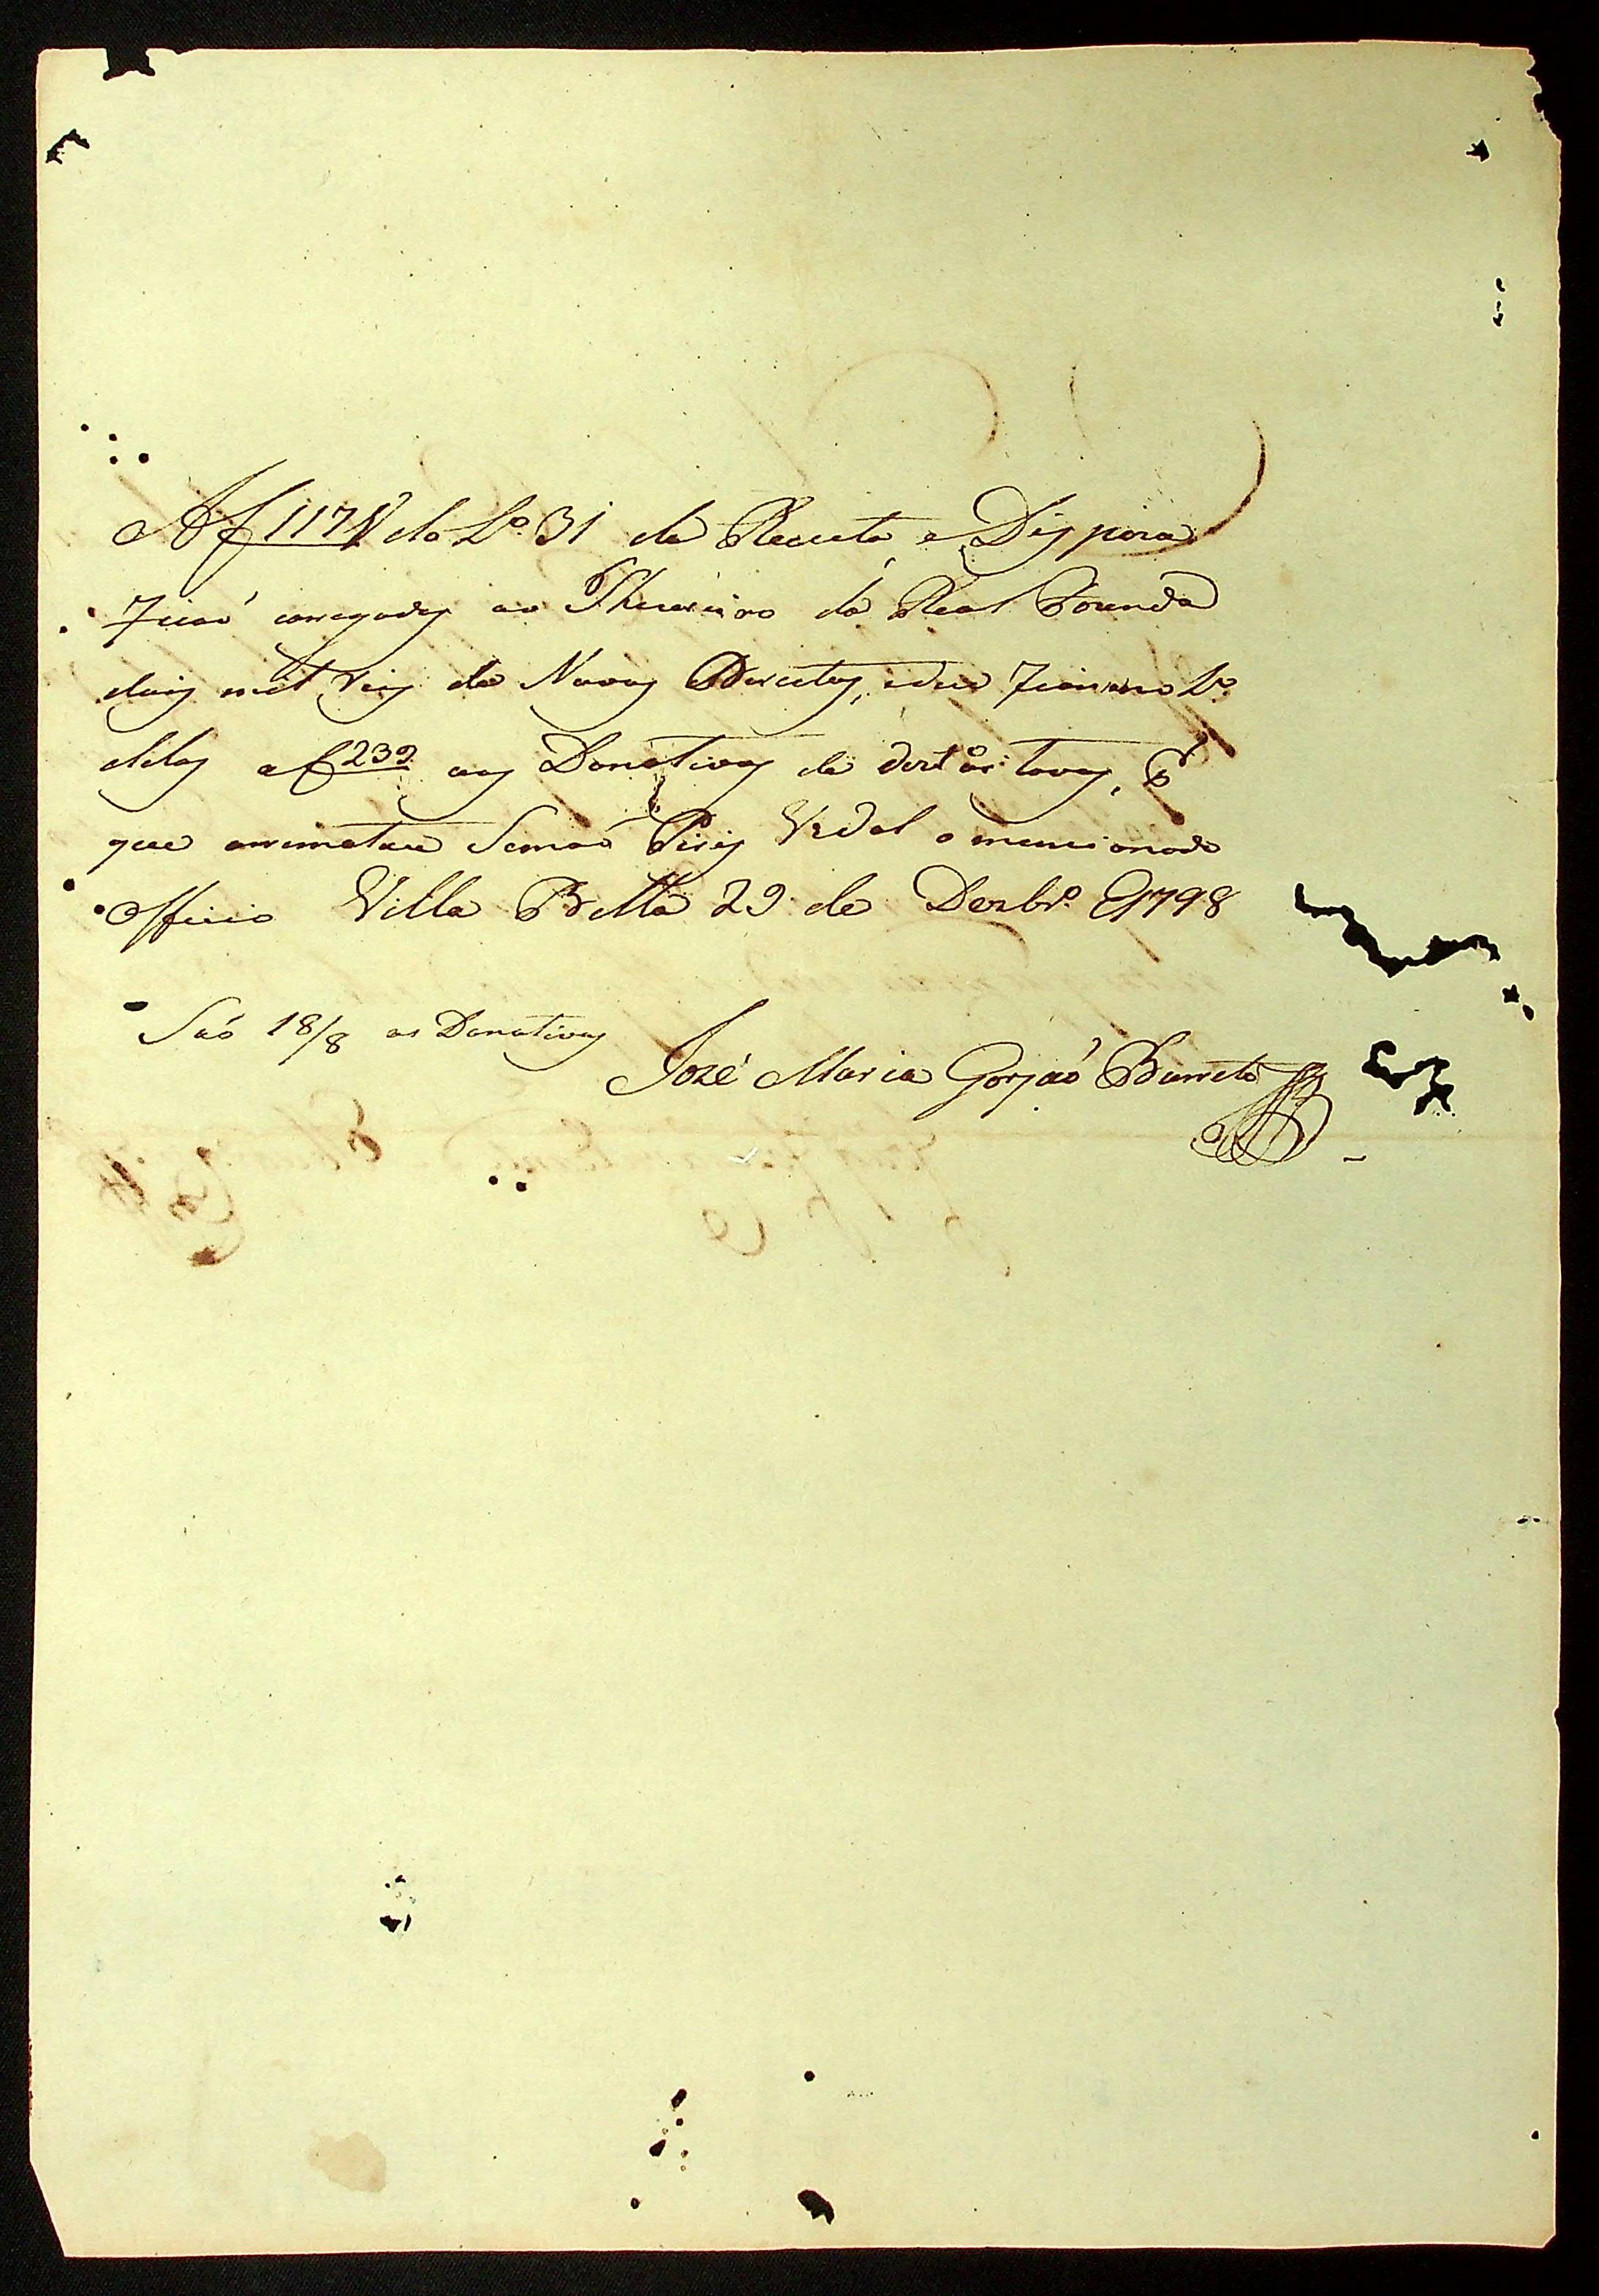 Af 117V do L.º 31 da Receita, e Dispeza
Ficaõ carregados ao Thezoureiro da Real Fazenda
dois mil reis de Novos Direitos, e
dellos af 239 aos Donativos de oitavas, P.
que arrematou Simaõ Pires Vidal o mencionado
officio Villa Bella 29 de Dezbr.º de 1798
Saõ 18/8 os Donativos
Jozé Maria Gorjaõ Barreto